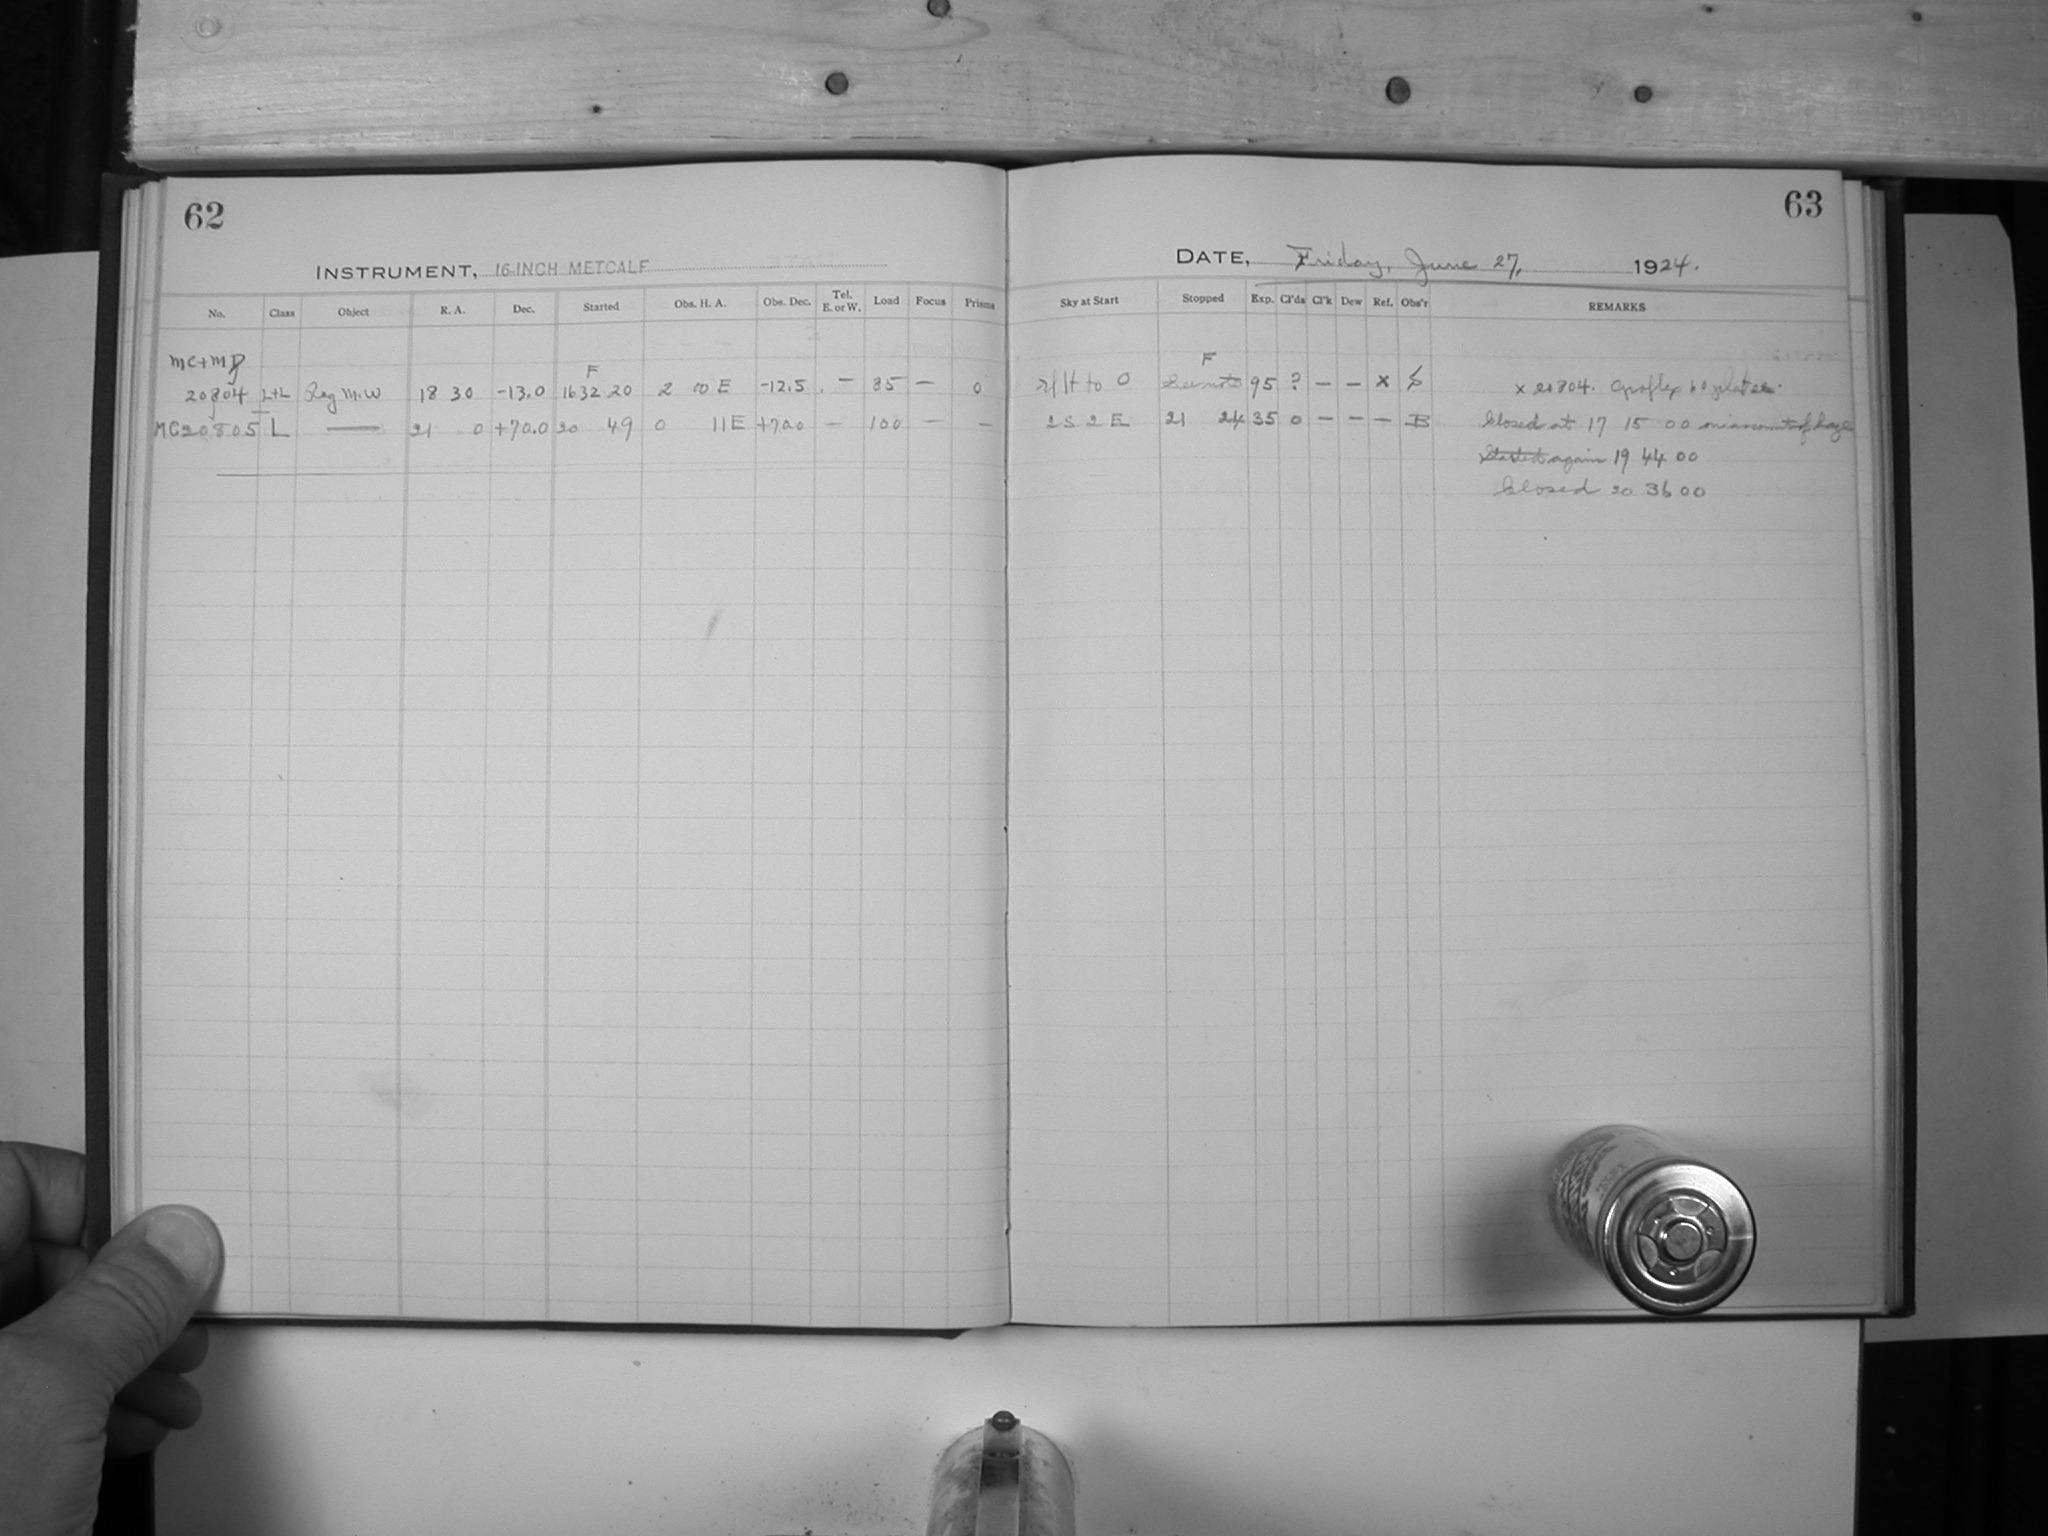 62
INSTRUMENT, 16-INCH METCALF
No. Class Object R. A. Dec. Started Obs. H. A. Obs. Dec. Tel. E. or W. Load Focus Prisms
MC+MD
F
20804 L+L Reg M.W 18 30 -13.0 16 32 20 2 00 E -12.5 - 85 - 0
MC20805 L — 21 0 +70.0 20 49 0 11E +70.0 - 100 - -
63
DATE, Friday, June 27, 1924.
Sky at Start Stopped Exp. Cl'ds Cl'k Dew Ref. Obs'r REMARKS
F
to 0 95 ? - - x S x 20804. Graflex 60 plates.
2 S 2 E 21 24 35 0 - - - B Closed at 17 15 00 on account of haze
Started again 19 44 00
Closed 20 36 00